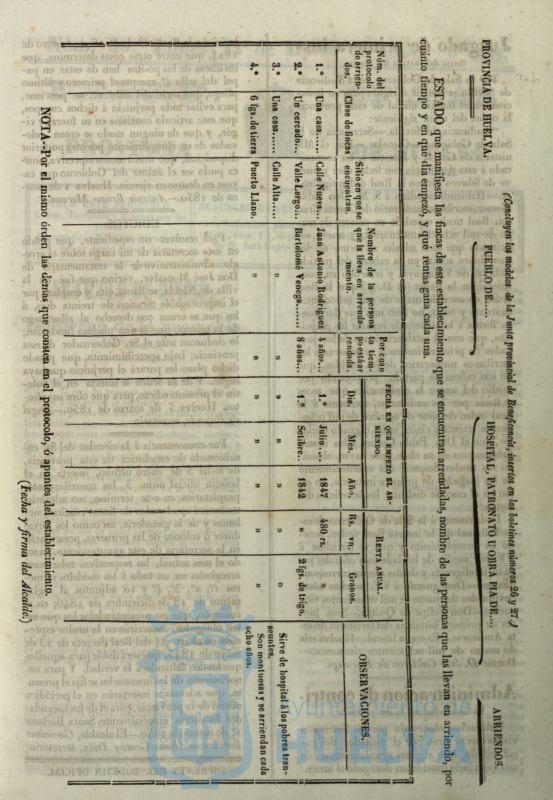 (Concluyen los modelos de la Junta provincial de Beneficencia, insertos en los boletines números 26 y 27.)
PROVINCIA DE HUELVA. PUEBLO DE..... HOSPITAL, PATRONATO U OBRA PIA DE.... ARRIENDOS.
ESTADO que manifiesta las fincas de este establecimiento que se encuentran arrendadas, nombre de las personas que las llevan en arriendo, por
cuánto tiempo y en qué dia empezó, y que rentas gana cada una.
Núm. del protocolo de arriendos. Clase de fincas Sitio en que se encuentran. Nombre de la persona que la lleva en arrendamiento. Por cuanto tiempo está arrendada. FECHA EN QUE EMPEZO EL ARRIENDO. Dia. Mes. Año. RENTA ANUAL. Rs. vn. Granos. OBSERVACIONES.
1.º Una casa...... Calle Nueva... Juan Antonio Rodriguez 4 años... 1.º Julio..... 1847 480 rs. »
2.º Un cercado... Valle Largo... Bartolomé Venega....... 8 años... 1.º Setibre.. 1842 » 2 fgs. de trigo.
3.º Una casa...... Calle Alta..... » » » » » » » Sirve de hospital á los pobres transeuntes.
4.º 6 fgs. de tierra Puerto Llano. » » » » » » » Son montuosas y se arriendan cada ocho años.
NOTA--Por el mismo órden las demas que consten en el protocolo, ó apuntes del establecimiento.
(Fecha y firma del Alcalde.)
Ayuntamiento de
HUELVA